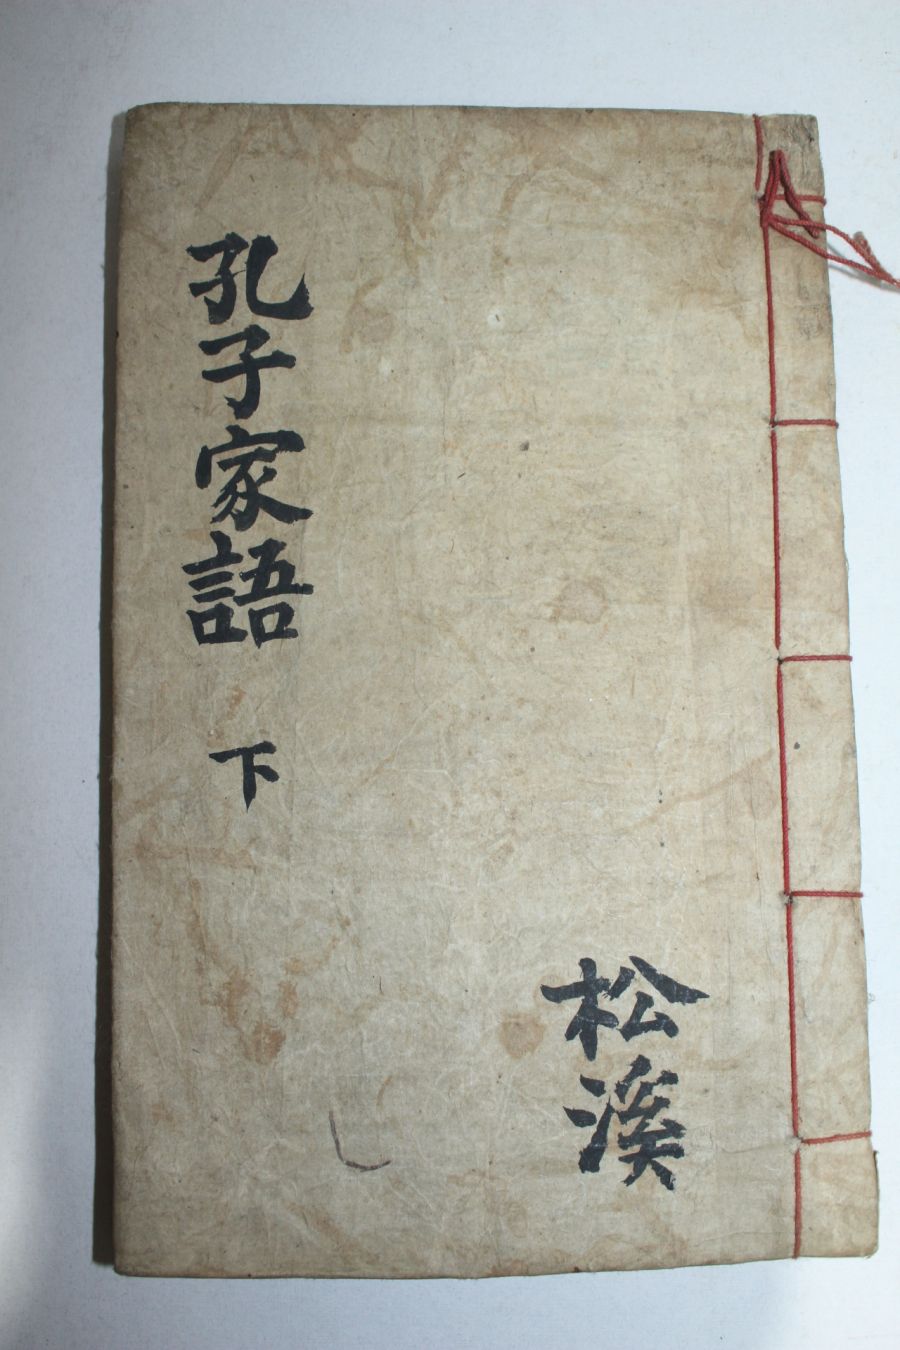 孔子家語 下
松溪